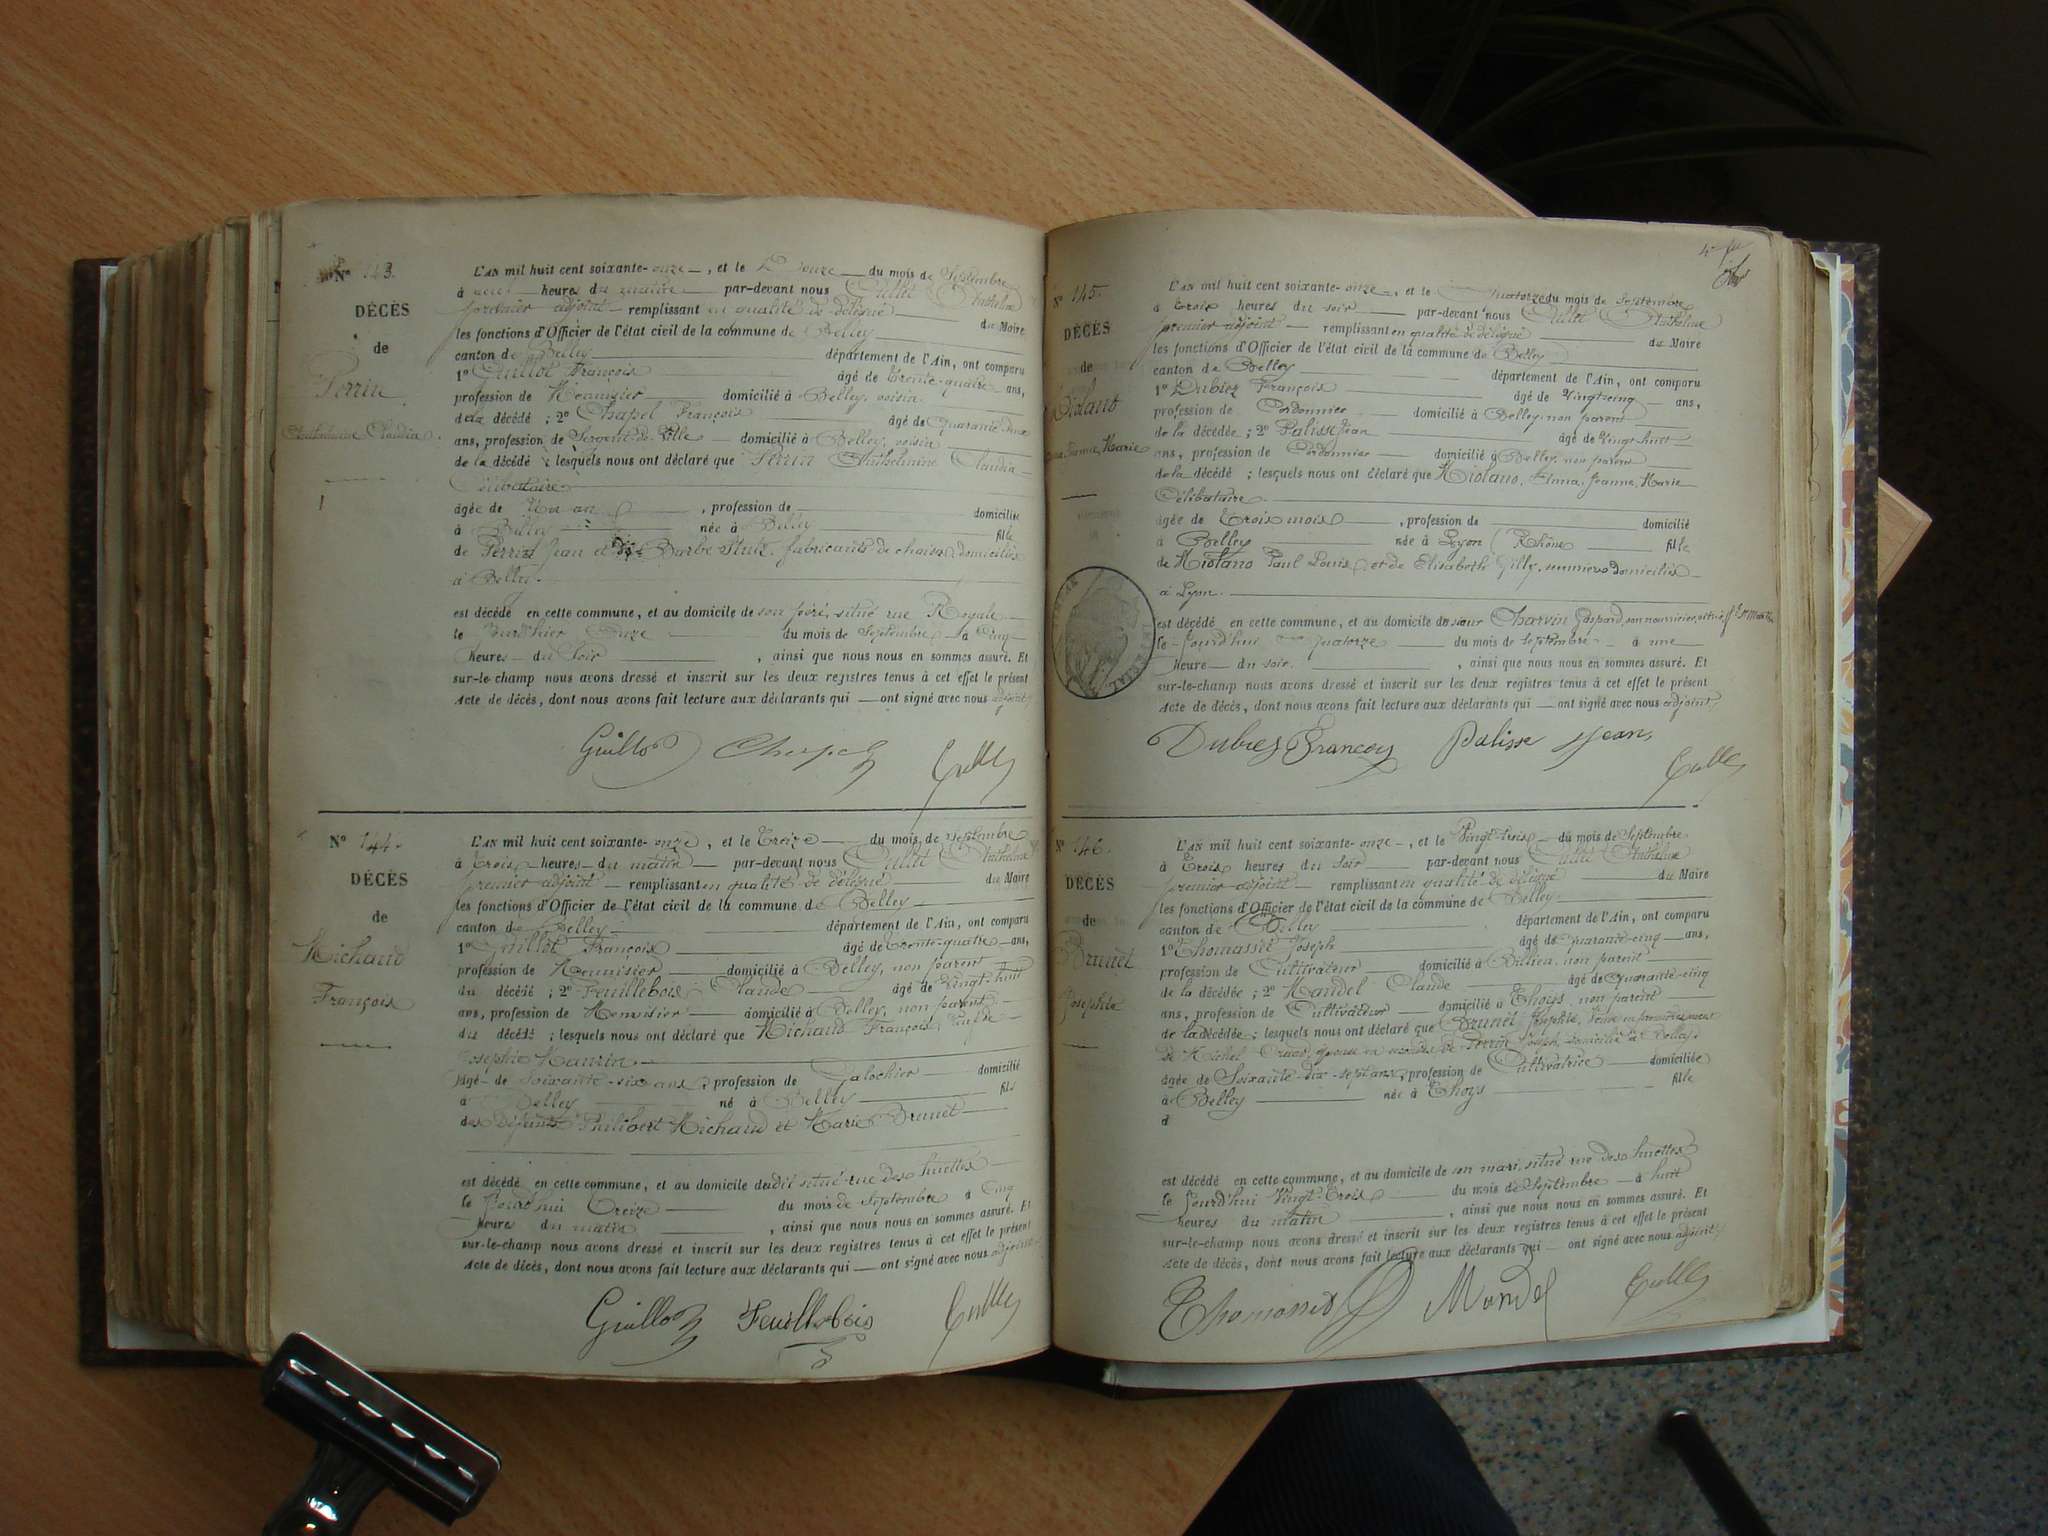 N° 143.
DÉCÈS
de
Perrin
Claudia
L'AN mil huit cent soixante-onze, et le onze du mois de Septembre
à heures du matin par-devant nous Anthelme
premier adjoint remplissant en qualité de délégué du Maire
les fonctions d'Officier de l'état civil de la commune de Belley
canton de Belley département de l'Ain, ont comparu
1° Guillot François âgé de trente-quatre ans,
profession de Menuisier domicilié à Belley, voisin
de la décédé ; 2° Chapel François âgé de quarante-deux
ans, profession de Sergent de Ville domicilié à Belley, voisin
de la décédé ; lesquels nous ont déclaré que Perrin Claudia
Célibataire
âgée de Un an, profession de domicilié
à Belley née à Belley fille
de Perrin Jean et de Barbe fabricants de chaises domiciliés
à Belley.
est décédé en cette commune, et au domicile de son père, situé rue Royale
le onze du mois de Septembre à cinq
heures du soir, ainsi que nous nous en sommes assuré. Et
sur-le-champ nous avons dressé et inscrit sur les deux registres tenus à cet effet le présent
Acte de décès, dont nous avons fait lecture aux déclarants qui ont signé avec nous adjoint
Guillot Chapel
N° 144.
DÉCÈS
de
Michaud
François
L'AN mil huit cent soixante-onze, et le Treize du mois de Septembre
à trois heures du matin par-devant nous Anthelme
premier adjoint remplissant en qualité de délégué du Maire
les fonctions d'Officier de l'état civil de la commune de Belley
canton de Belley département de l'Ain, ont comparu
1° Guillot François âgé de trente-quatre ans,
profession de Menuisier domicilié à Belley, non parent
du décédé ; 2° Feuillebois Claude âgé de vingt-huit
ans, profession de Menuisier domicilié à Belley, non parent
du décédé ; lesquels nous ont déclaré que Michaud François, veuf de
Josephte Maurin
âgé de soixante-six ans, profession de Galochier domicilié
à Belley né à Belley fils
des défunts Philibert Michaud et Marie Brunet
est décédé en cette commune, et au domicile dudit situé rue des huettes
le jourd'hui Treize du mois de Septembre à cinq
heures du matin, ainsi que nous nous en sommes assuré. Et
sur-le-champ nous avons dressé et inscrit sur les deux registres tenus à cet effet le présent
Acte de décès, dont nous avons fait lecture aux déclarants qui ont signé avec nous adjoint
Guillot Feuillebois
N° 145.
DÉCÈS
de
Miolano
Jeanne, Marie
L'AN mil huit cent soixante-onze, et le quatorze du mois de Septembre
à trois heures du soir par-devant nous Anthelme
premier adjoint remplissant en qualité de délégué du Maire
les fonctions d'Officier de l'état civil de la commune de Belley
canton de Belley département de l'Ain, ont comparu
1° Dubiez François âgé de vingt-cinq ans,
profession de Cordonnier domicilié à Belley, non parent
de la décédée ; 2° Palisse Jean âgé de vingt-huit
ans, profession de Cordonnier domicilié à Belley, non parent
de la décédé ; lesquels nous ont déclaré que Miolano, Anna, Jeanne, Marie
Célibataire
âgée de Trois mois, profession de domicilié
à Belley née à Lyon (Rhône fille
de Miolano Paul Louis, et de Elisabeth domiciliés
à Lyon.
est décédé en cette commune, et au domicile du sieur Charvin Gaspard, son nourricier, situé
le jourd'hui quatorze du mois de septembre à une
heure du soir, ainsi que nous nous en sommes assuré. Et
sur-le-champ nous avons dressé et inscrit sur les deux registres tenus à cet effet le présent
Acte de décès, dont nous avons fait lecture aux déclarants qui ont signé avec nous adjoint
Dubies François Palisse Jean
N° 146.
DÉCÈS
de
Brunet
Josephte
L'AN mil huit cent soixante-onze, et le Vingt-trois du mois de Septembre
à Trois heures du soir par-devant nous Anthelme
premier adjoint remplissant en qualité de délégué du Maire
les fonctions d'Officier de l'état civil de la commune de Belley
canton de Belley département de l'Ain, ont comparu
1° Thomasset Joseph âgé de quarante-cinq ans,
profession de Cultivateur domicilié à Billieu, non parent
de la décédée ; 2° Mandel Claude âgé de quarante-cinq
ans, profession de Cultivateur domicilié à Thoys, non parent
de la décédée ; lesquels nous ont déclaré que Brunet Josephte, Veuve en premières noces
de Michel épouse en secondes de Perrin Joseph, domicilié à Belley,
âgée de Soixante-dix-sept ans, profession de Cultivatrice domiciliée
à Belley née à Thoys fille
d
est décédé en cette commune, et au domicile de son mari, situé rue des huettes
le jourd'hui Vingt-trois du mois de Septembre à huit
heures du matin, ainsi que nous nous en sommes assuré. Et
sur-le-champ nous avons dressé et inscrit sur les deux registres tenus à cet effet le présent
Acte de décès, dont nous avons fait lecture aux déclarants qui ont signé avec nous adjoint
Thomasset Mandel